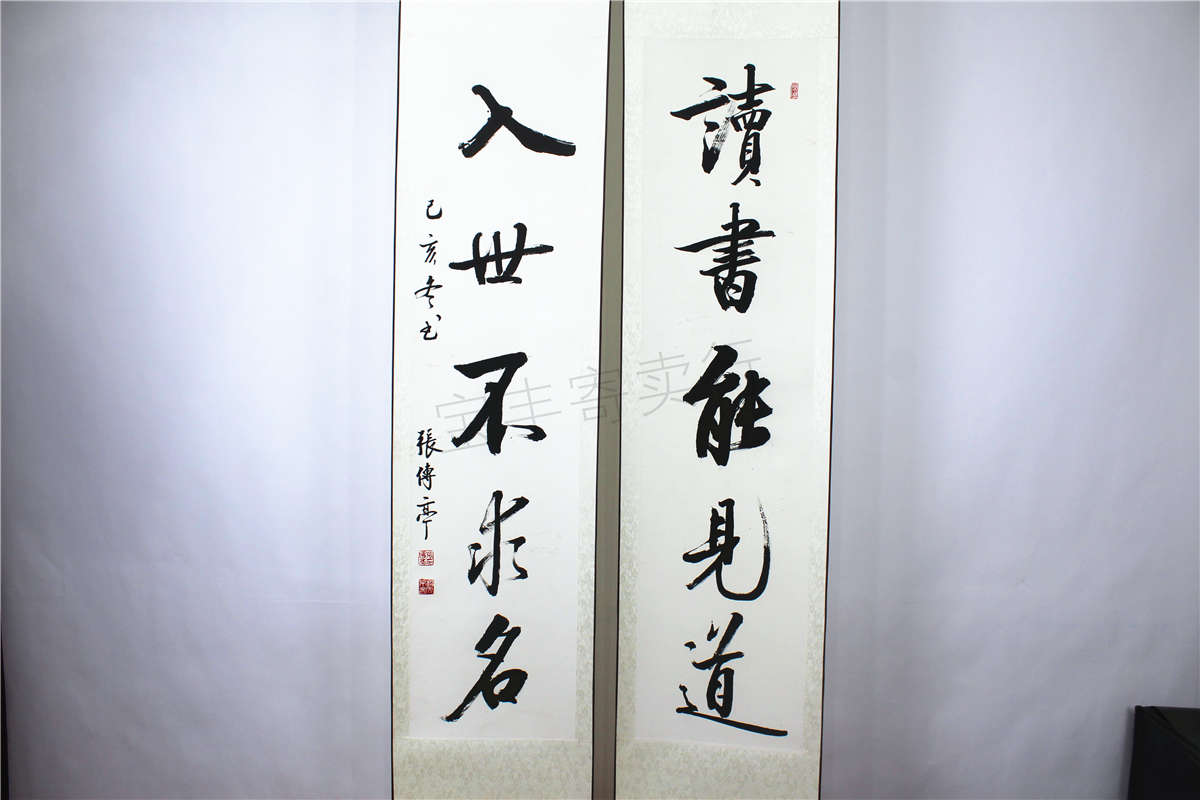 讀書能見道
入世不求名
己亥冬书
張傳亭
宝丰寄卖行